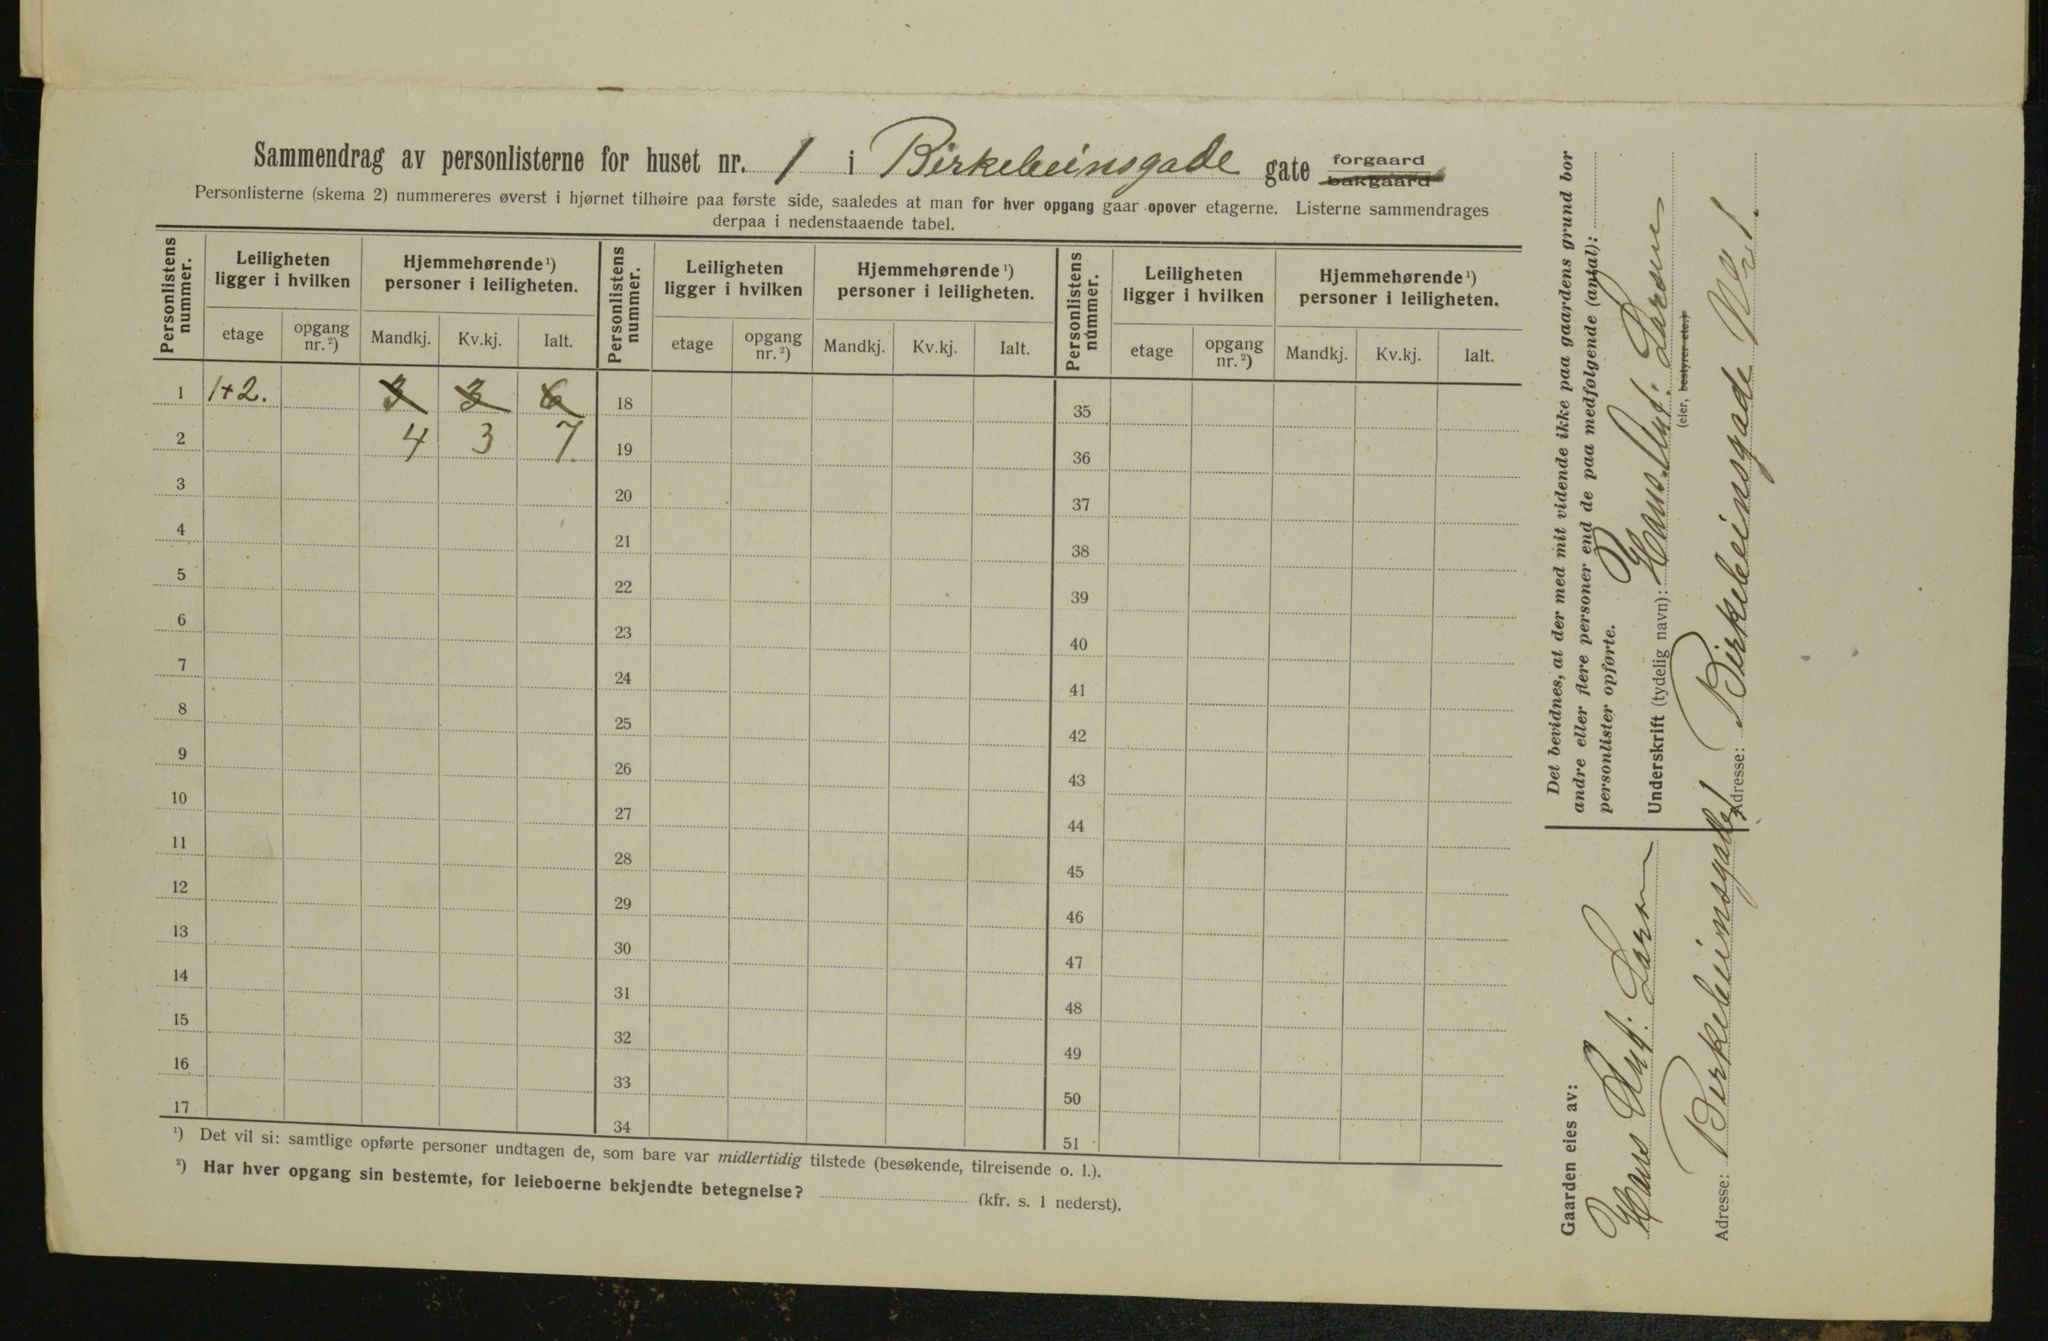 Sammendrag av personlisterne for huset nr. 1 i Birkebeinsgade gate forgaard bakgaard
Personlisterne (skema 2) nummereres øverst i hjørnet tilhøire paa første side, saaledes at man for hver opgang gaar opover etagerne. Listerne sammendrages
derpaa i nedenstaaende tabel.
Personlistens nummer. Leiligheten ligger i hvilken Hjemmehørende ¹) personer i leiligheten. Personlistens nummer. Leiligheten ligger i hvilken Hjemmehørende ¹) personer i leiligheten. Personlistens nummer. Leiligheten ligger i hvilken Hjemmehørende ¹) personer i leiligheten.
etage opgang nr. ²) Mandkj. Kv.kj. Ialt. etage opgang nr. ²) Mandkj. Kv.kj. Ialt. etage opgang nr. ²) Mandkj. Kv.kj. Ialt.
1 1+2. 3 3 6 18 35
2 4 3 7 19 36
3 20 37
4 21 38
5 22 39
6 23 40
7 24 41
8 25 42
9 26 43
10 27 44
11 28 45
12 29 46
13 30 47
14 31 48
15 32 49
16 33 50
17 34 51
¹) Det vil si: samtlige opførte personer undtagen de, som bare var midlertidig tilstede (besøkende, tilreisende o. l.).
²) Har hver opgang sin bestemte, for leieboerne bekjendte betegnelse? (kfr. s. 1 nederst).
Det bevidnes, at der med mit vidende ikke paa gaardens grund bor
andre eller flere personer end de paa medfølgende (antal):
personlister opførte.
Underskrift (tydelig navn): Hans Chr. Larsen
(eier, bestyrer etc.)
Adresse: Birkebeinsgade No 1.
Gaarden eies av:
Hans Chr. Larsen
Adresse: Birkebeinsgade 1